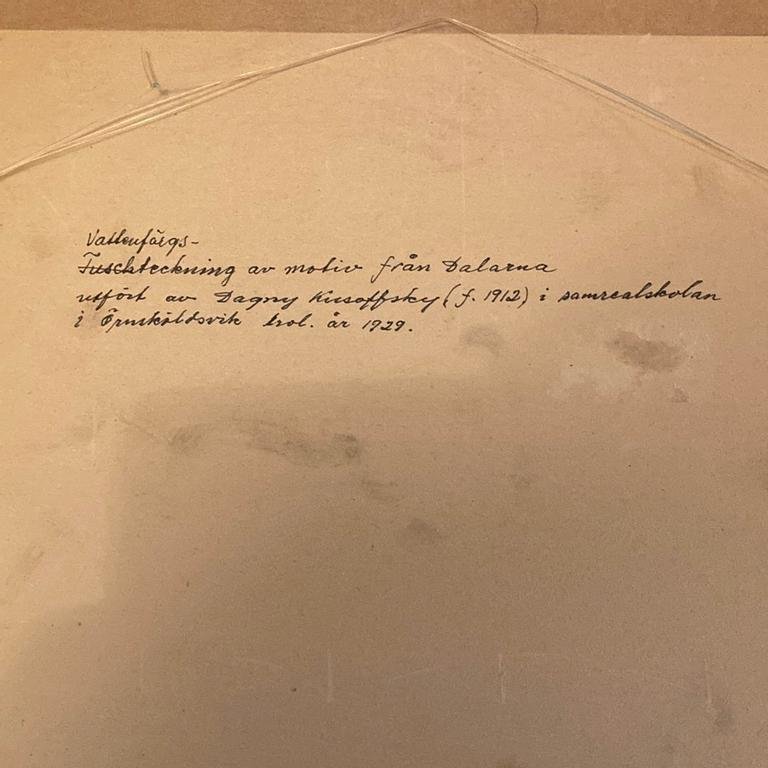 Vattenfärgs-
Tuschteckning av motiv från Dalarna
utfört av Dagny Kusoffsky (f. 1912) i samrealskolan
i Örnsköldsvik trol. år 1929.